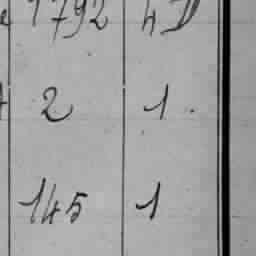 1792 4D
2 1.
145 1